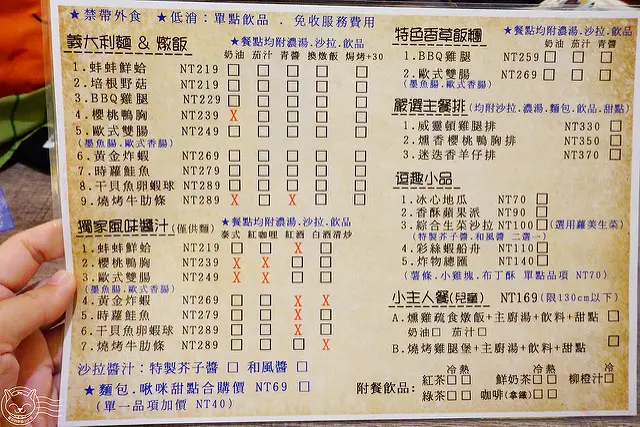 ★禁帶外食 ★低消：單點飲品．免收服務費用
義大利麵 & 燉飯
★餐點均附濃湯.沙拉.飲品
奶油 茄汁 青醬 換燉飯 焗烤+30
1.蚌蚌鮮蛤 NT219 □ □ □ □ □
2.培根野菇 NT219 □ □ □ □ □
3.BBQ雞腿 NT229 □ □ □ □ □
4.櫻桃鴨胸 NT239 X □ □ □ □
5.歐式雙腸 NT249 □ □ □ □ □
(墨魚腸.歐式香腸)
6.黃金炸蝦 NT269 □ □ □ □ □
7.時蘿鮭魚 NT279 □ □ □ □ □
8.干貝魚卵蝦球 NT289 □ □ □ □ □
9.燒烤牛肋條 NT289 X □ X □ □
獨家風味醬汁(僅供麵)
★餐點均附濃湯.沙拉.飲品
泰式 紅咖哩 紅酒 白酒清炒
1.蚌蚌鮮蛤 NT219 □ □ X □
2.櫻桃鴨胸 NT239 X X □ □
3.歐式雙腸 NT249 X X □ □
(墨魚腸.歐式香腸)
4.黃金炸蝦 NT269 □ □ X X
5.時蘿鮭魚 NT279 □ □ X □
6.干貝魚卵蝦球 NT289 □ □ X □
7.燒烤牛肋條 NT289 □ □ □ X
沙拉醬汁：特製芥子醬 □ 和風醬 □
★麵包.啾咪甜點合購價 NT69 □
(單一品項加價 NT40)
特色香草飯糰
★餐點均附濃湯.沙拉.飲品
奶油 茄汁 青醬
1.BBQ雞腿 NT259 □ □ □
2.歐式雙腸 NT269 □ □ □
(墨魚腸.歐式香腸)
嚴選主餐排(均附沙拉.濃湯.麵包.飲品.甜點)
1.威靈頓雞腿排 NT330 □
2.燻香櫻桃鴨胸排 NT350 □
3.迷迭香羊仔排 NT370 □
逗趣小品
1.冰心地瓜 NT70 □
2.香酥蘋果派 NT90 □
3.綜合生菜沙拉 NT100 □(選用蘿美生菜)
(特製芥子醬.和風醬 二選一)
4.彩絲蝦船舟 NT110 □
5.炸物總匯 NT140 □
(薯條.小雞塊.布丁酥 單點品項 NT70)
小主人餐(兒童) NT169(限130cm以下)
A.燻雞疏食燉飯+主廚湯+飲料+甜點 □
奶油□ 茄汁□
B.燒烤雞腿堡+主廚湯+飲料+甜點 □
附餐飲品：
冷 熱 冷 熱 冷
紅茶□□ 鮮奶茶□□ 柳橙汁□
綠茶□□ 咖啡(拿鐵)□□